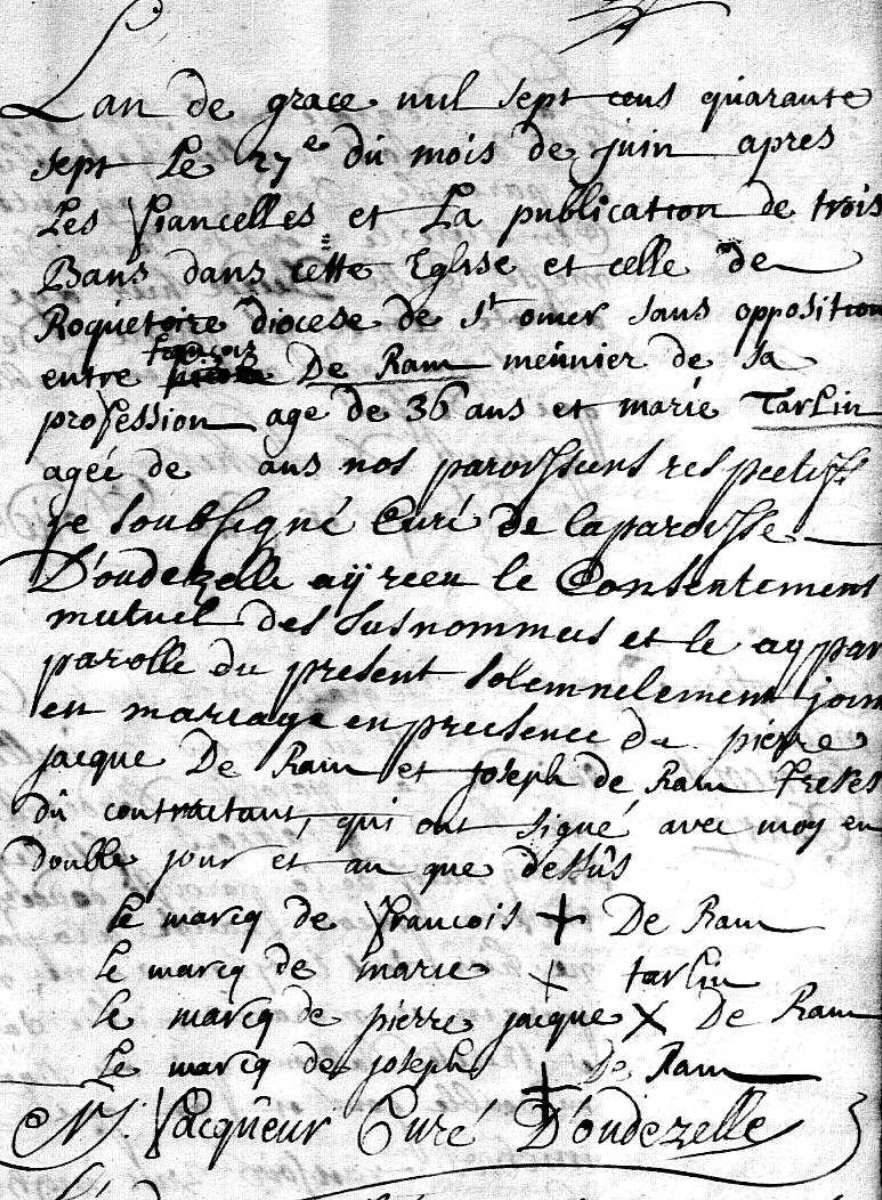 Lan de grace mil sept cens quarante
sept Le 27e du mois de juin apres
Les fiancelles et La publication de trois
Bans dans cette Eglise et celle de
Roquetoire diocese de st omer sans opposition
françois
entre De Ram meunier de sa
profession age de 36 ans et marie Tarlin
ageé de ans nos paroissiens respectifs
je soubsigné Curé de la paroisse
D'oudezelle aÿ receu le Consentement
mutuel des susnommes et le ay par
parolle du present solemnelement join
en mariage en presence de pierre
jacque De Ram et joseph de Ram freres
du contractant, qui ont signé avec moy en
double jour et an que dessus
Le marcq de francois + De Ram
Le marcq de marie + tarlin
Le marcq de pierre jacque X De Ram
Le marcq de joseph + De Ram
facqueur Curé D'oudezelle